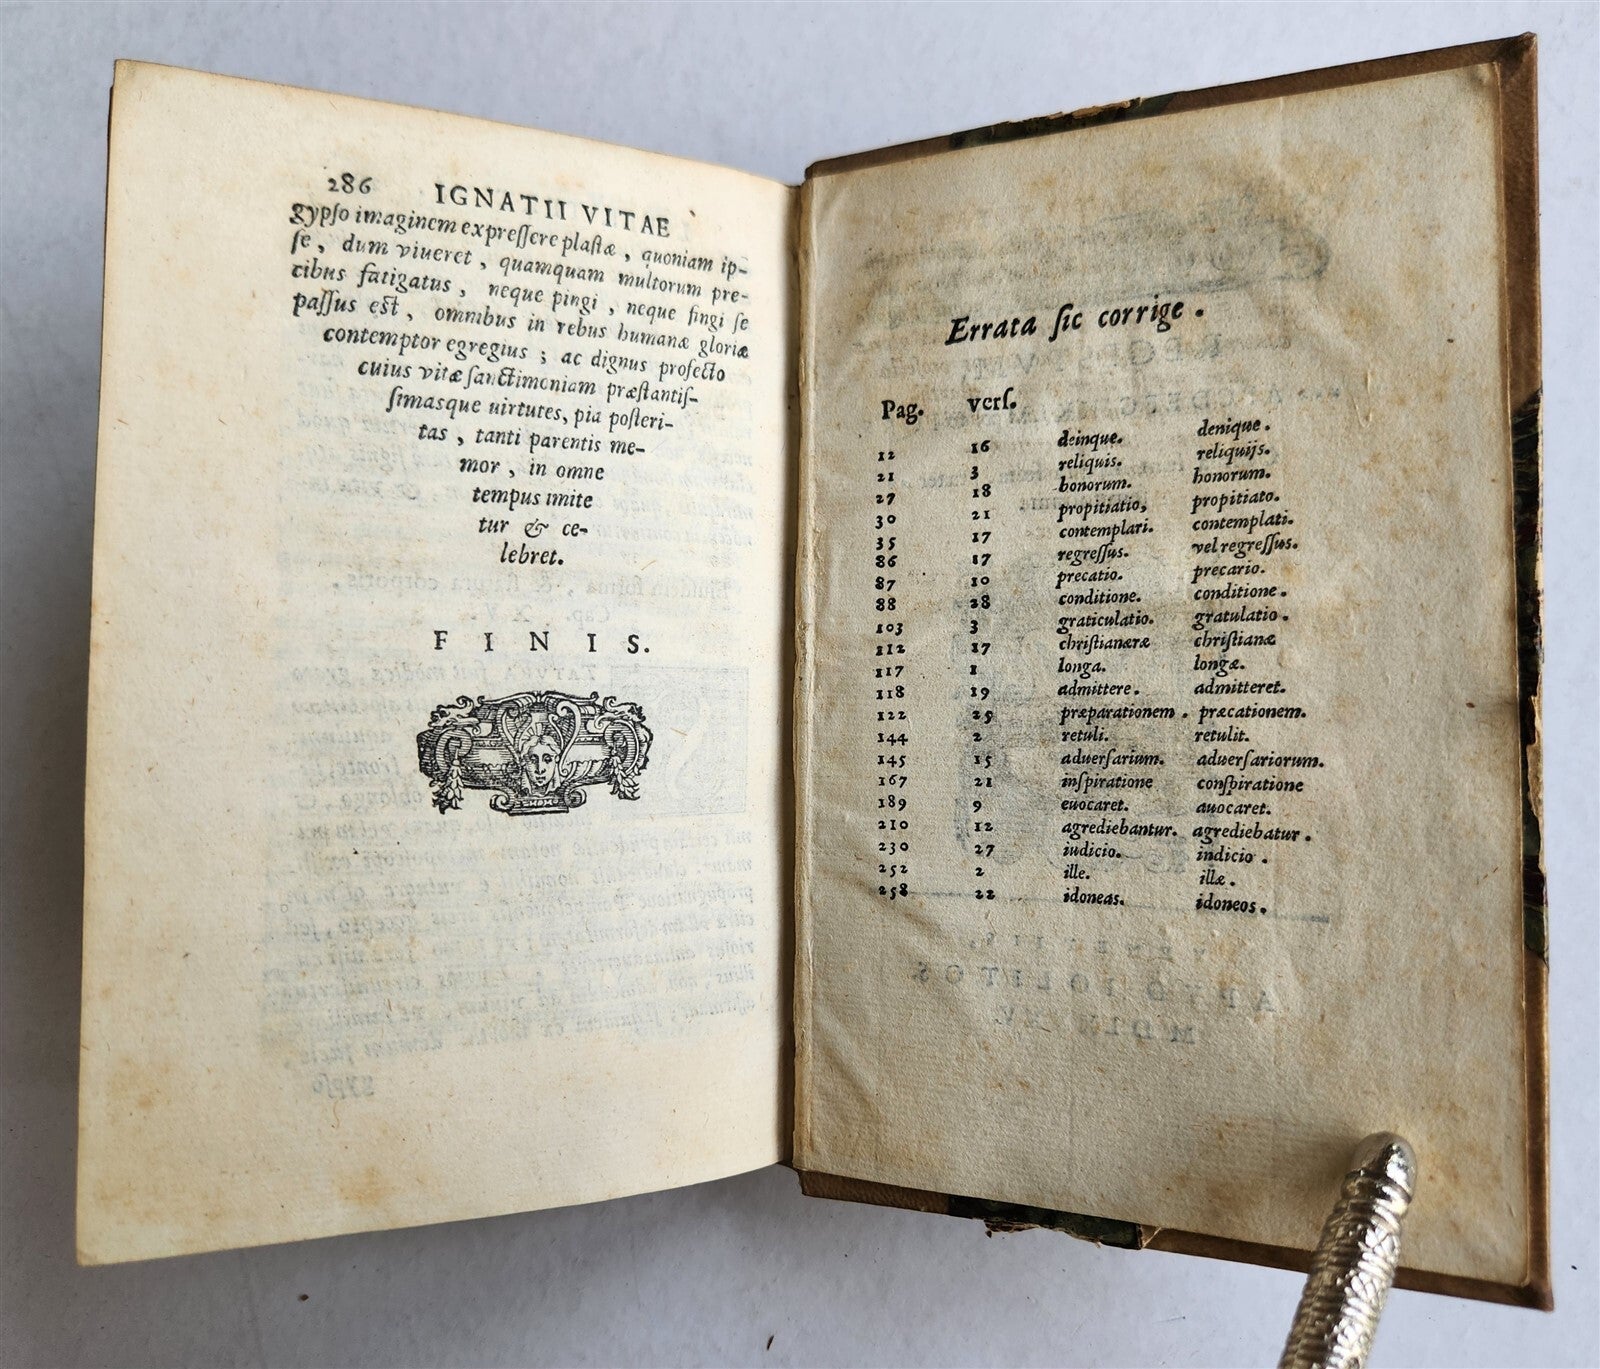 286 IGNATII VITAE
gypſo imaginem expreſſere plaſtæ, quoniam ip-
ſe, dum viueret, quamquam multorum pre-
cibus fatigatus, neque pingi, neque fingi ſe
paſſus est, omnibus in rebus humanæ gloriæ
contemptor egregius; ac dignus profecto
cuius vitæ ſanctimoniam præſtantiſ-
ſimasque uirtutes, pia poſteri-
tas, tanti parentis me-
mor, in omne
tempus imite
tur & ce-
lebret.
FINIS.
Errata ſic corrige.
Pag. verſ.
12 16 deinque. denique.
21 3 reliquis. reliquijs.
27 18 bonorum. honorum.
30 21 propitiatio, propitiato.
35 17 contemplari. contemplati.
86 17 regreſſus. vel regreſſus.
87 10 precatio. precario.
88 28 conditione. conditione.
103 3 graticulatio. gratulatio.
112 17 chriſtianæræ chriſtianæ
117 1 longa. longæ.
118 19 admittere. admitteret.
122 25 præparationem. præcationem.
144 2 retuli. retulit.
145 15 aduerſarium. aduerſariorum.
167 21 inſpiratione conſpiratione
189 9 euocaret. auocaret.
210 12 agrediebantur. agrediebatur.
230 27 iudicio. indicio.
252 2 ille. illæ.
258 22 idoneas. idoneos.